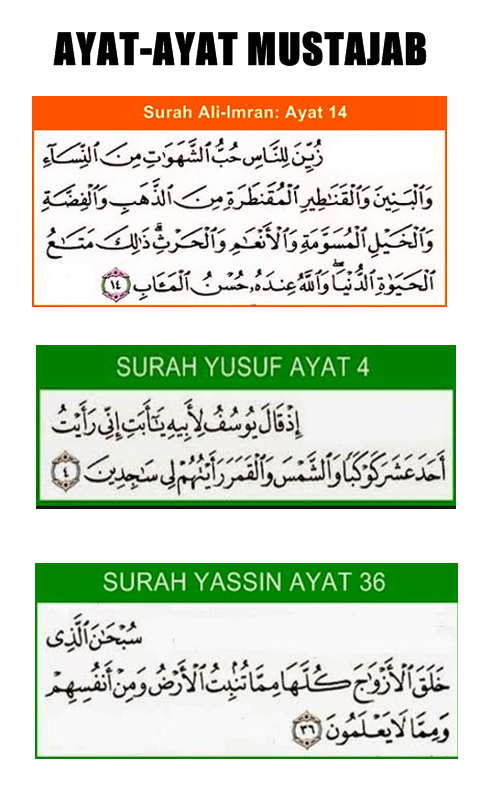 AYAT-AYAT MUSTAJAB
Surah Ali-Imran: Ayat 14
زُيِّنَ لِلنَّاسِ حُبُّ الشَّهَوَٰتِ مِنَ النِّسَآءِ
وَالْبَنِينَ وَالْقَنَٰطِيرِ الْمُقَنطَرَةِ مِنَ الذَّهَبِ وَالْفِضَّةِ
وَالْخَيْلِ الْمُسَوَّمَةِ وَالْأَنْعَٰمِ وَالْحَرْثِ ۗ ذَٰلِكَ مَتَٰعُ
الْحَيَوٰةِ الدُّنْيَا ۖ وَاللَّهُ عِندَهُۥ حُسْنُ الْمَـَٔابِ ١٤
SURAH YUSUF AYAT 4
إِذْ قَالَ يُوسُفُ لِأَبِيهِ يَٰٓأَبَتِ إِنِّى رَأَيْتُ
أَحَدَ عَشَرَ كَوْكَبًا وَالشَّمْسَ وَالْقَمَرَ رَأَيْتُهُمْ لِى سَٰجِدِينَ ٤
SURAH YASSIN AYAT 36
سُبْحَٰنَ الَّذِى
خَلَقَ الْأَزْوَٰجَ كُلَّهَا مِمَّا تُنۢبِتُ الْأَرْضُ وَمِنْ أَنفُسِهِمْ
وَمِمَّا لَا يَعْلَمُونَ ٣٦